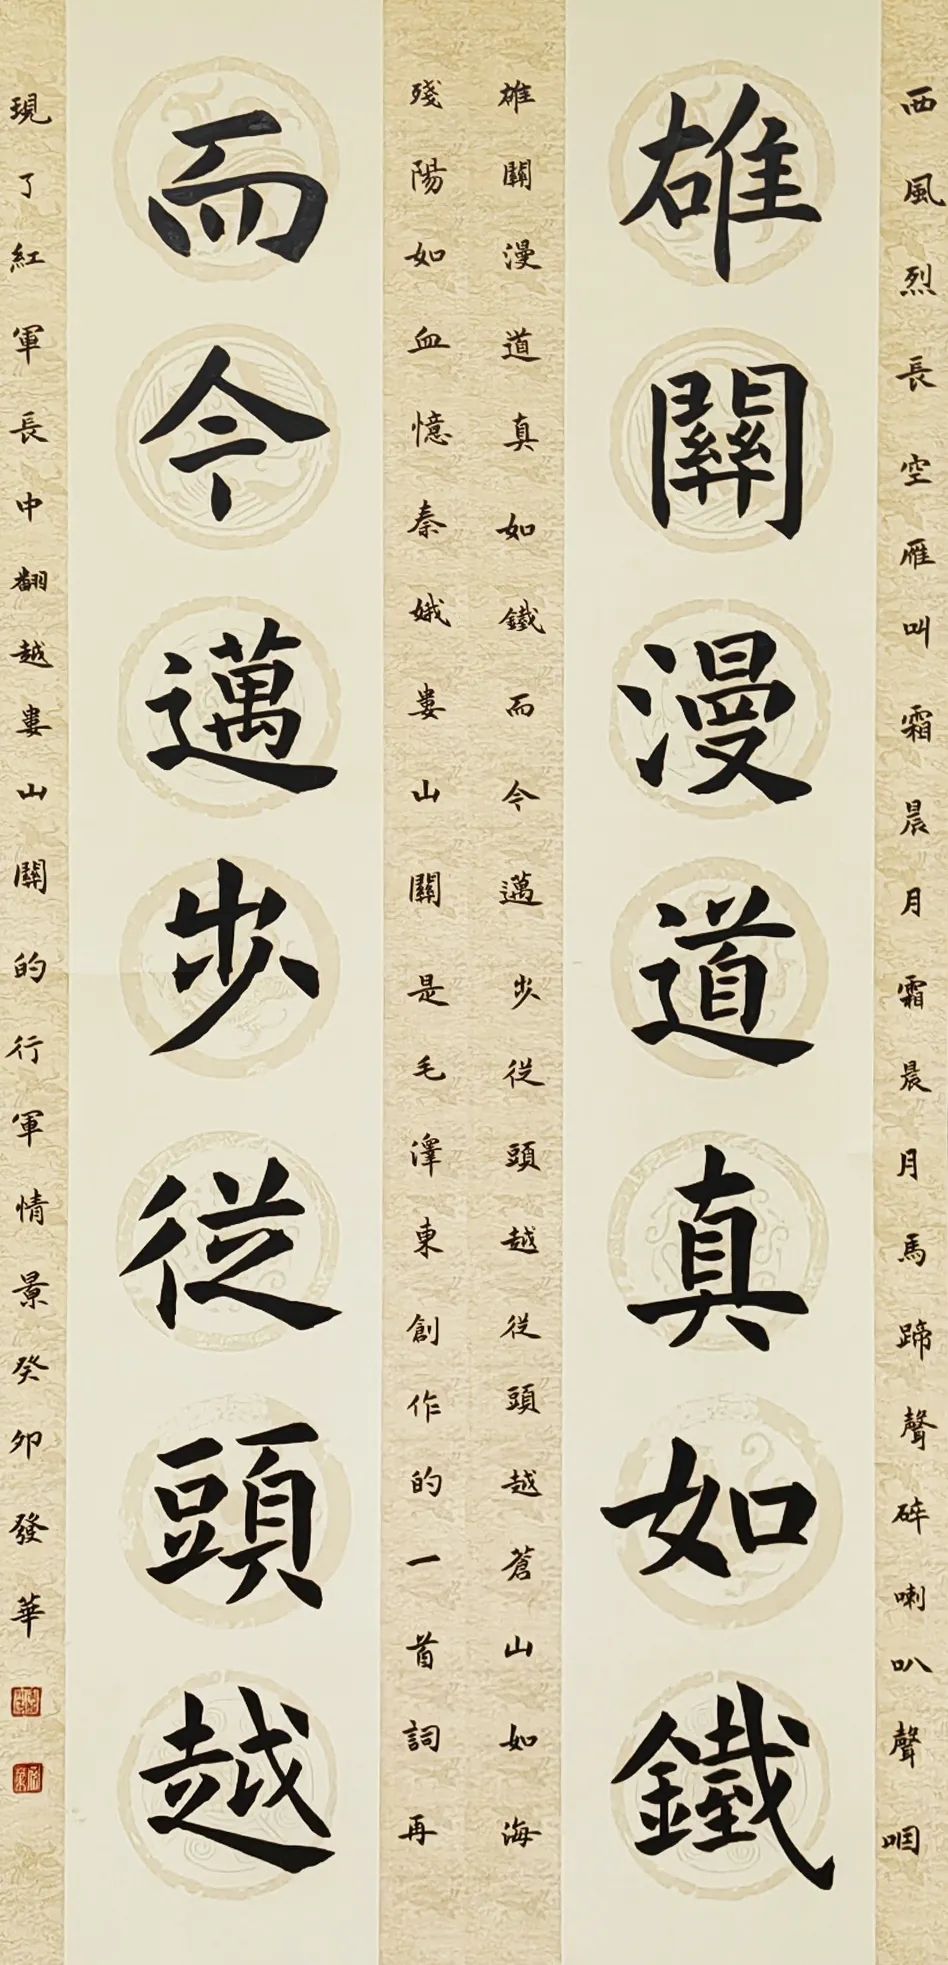 西風烈長空雁叫霜晨月霜晨月馬蹄聲碎喇叭聲咽
雄關漫道真如鐵
雄關漫道真如鐵而今邁步從頭越從頭越蒼山如海
殘陽如血憶秦娥婁山關是毛澤東創作的一首詞再
而今邁步從頭越
現了紅軍長中翻越婁山關的行軍情景癸卯發華